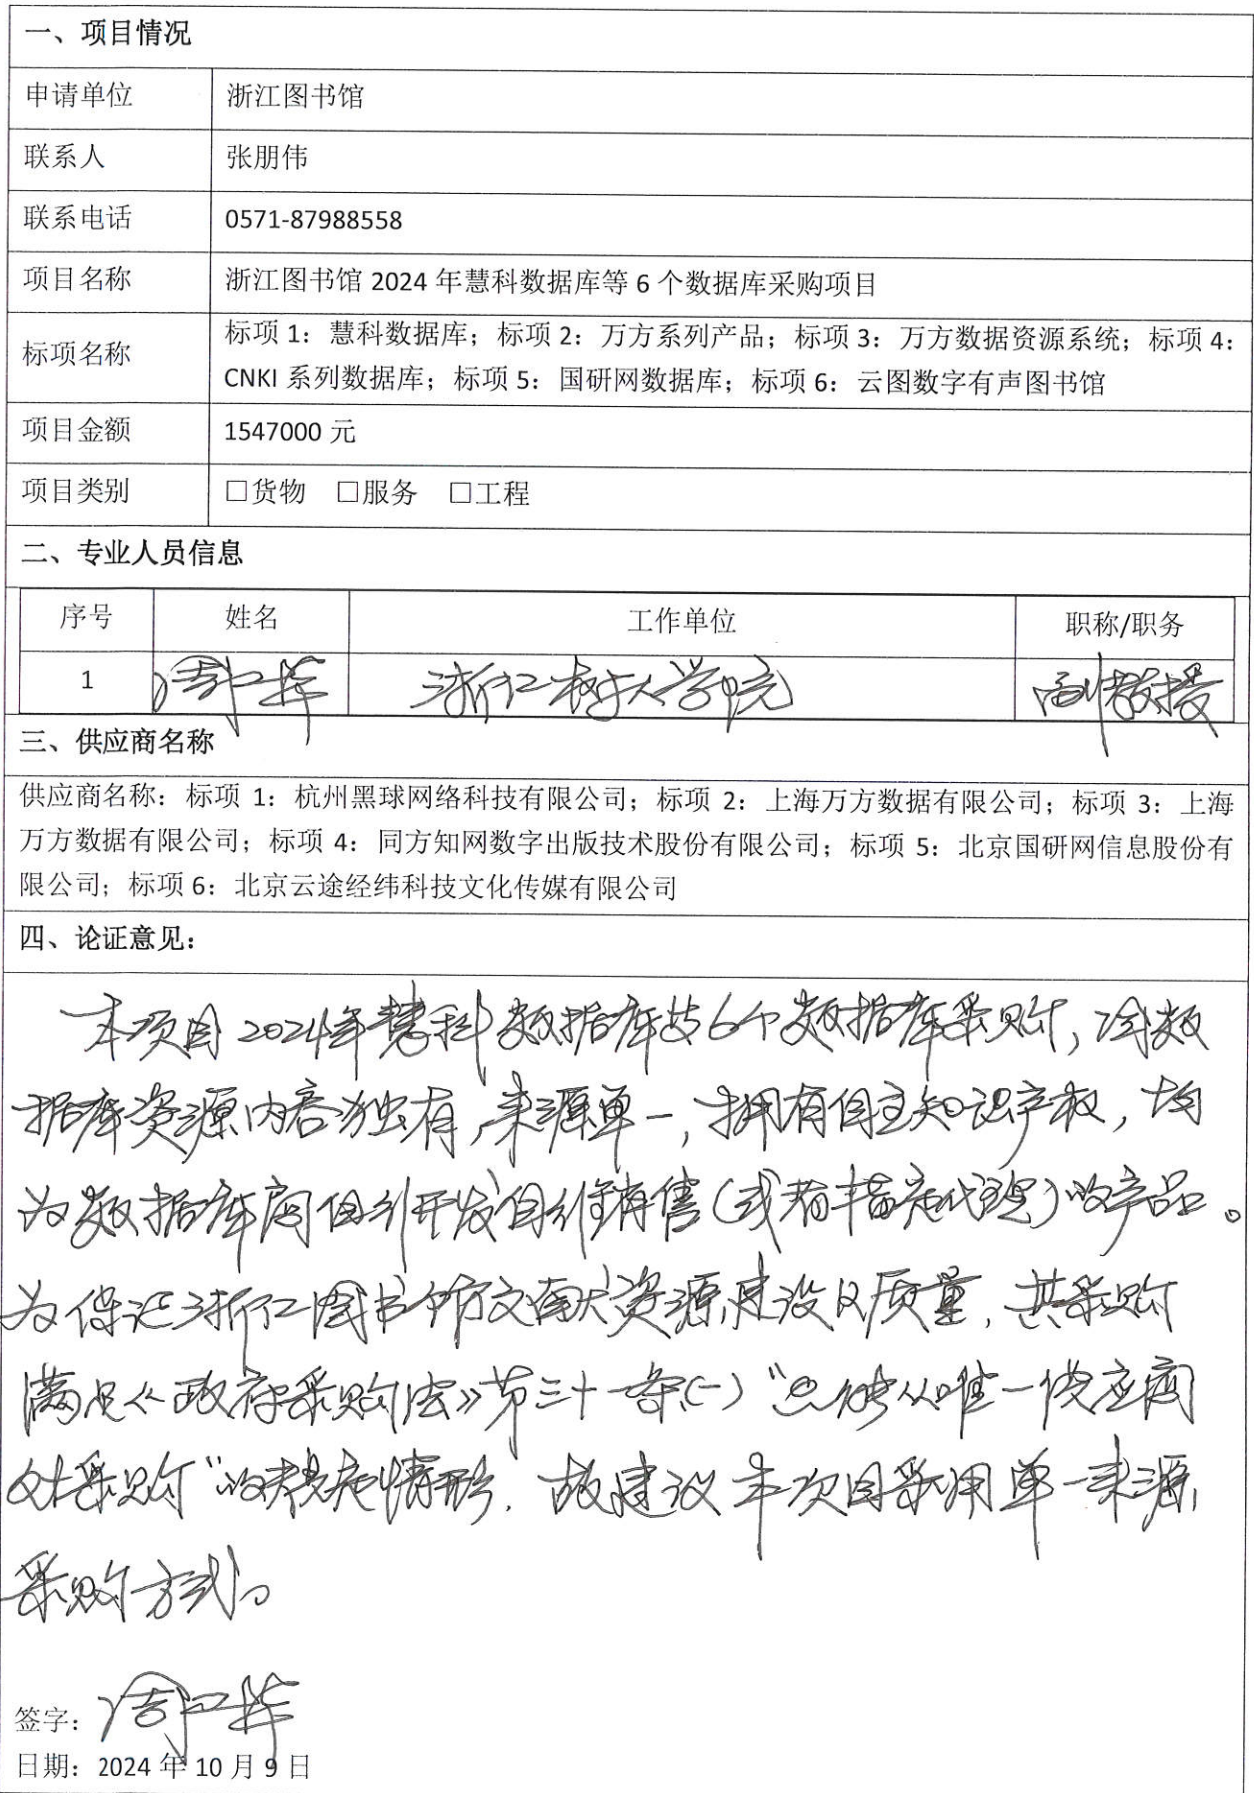 一、项目情况
申请单位 浙江图书馆
联系人 张朋伟
联系电话 0571-87988558
项目名称 浙江图书馆 2024 年慧科数据库等 6 个数据库采购项目
标项名称 标项 1：慧科数据库；标项 2：万方系列产品；标项 3：万方数据资源系统；标项 4：
CNKI 系列数据库；标项 5：国研网数据库；标项 6：云图数字有声图书馆
项目金额 1547000 元
项目类别 □货物 □服务 □工程
二、专业人员信息
序号 姓名 工作单位 职称/职务
1 浙江树人学院 副教授
三、供应商名称
供应商名称：标项 1：杭州黑球网络科技有限公司；标项 2：上海万方数据有限公司；标项 3：上海
万方数据有限公司；标项 4：同方知网数字出版技术股份有限公司；标项 5：北京国研网信息股份有
限公司；标项 6：北京云途经纬科技文化传媒有限公司
四、论证意见：
本项目2024年慧科数据库等6个数据库采购，因数
据库资源内容独有，来源单一，拥有自主知识产权，均
为数据库商自行开发自行销售（或者指定代理）的产品。
为保证浙江图书馆文献资源建设的质量，其采购
满足《政府采购法》第三十一条（一）“只能从唯一供应商
处采购”的规定情形，故建议本项目采用单一来源
采购方式。
签字：
日期：2024 年 10 月 9 日